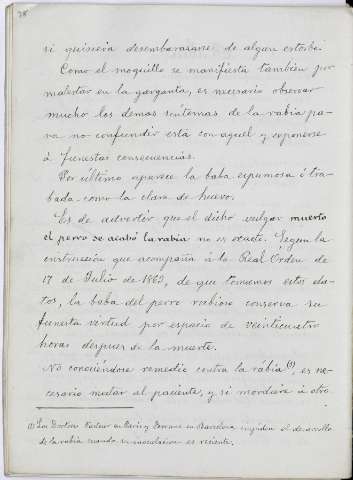 28
si quisiera desembarazarse de algun estorbo.
Como el moquillo se manifiesta tambien por
malestar en la garganta, es necesario observar
mucho los demas síntomas de la rabia pa-
ra no confundir esta con aquel y exponerse
á funestas consecuencias.
Por último aparece la baba espumosa ó tra-
bada como la clara de huevo.
Es de advertir que el dicho vulgar muerto
el perro se acabó la rabia no es exacto. Segun la
instruccion que acompaña á la Real Orden de
17 de Julio de 1863, de que tomamos estos da-
tos, la baba del perro rabioso conserva su
funesta virtud por espacio de veinticuatro
horas despues de la muerte.
No conociéndose remedio contra la rábia (1), es ne-
cesario matar al paciente, y si mordiere á otro
(1) Los Doctores Pasteur en Paris y Ferran en Barcelona impiden el desarrollo
de la rabia cuando su inoculacion es reciente.